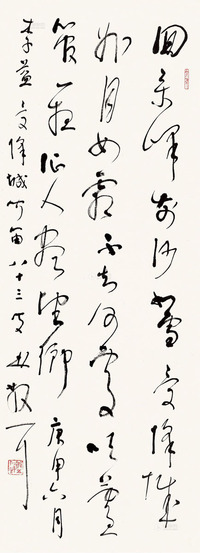 回樂峰前沙似雪受降城
外月如霜不知何處吹蘆
管一夜征人盡望鄉 庚申六月
李益受降城聞笛 八十三叟林散耳